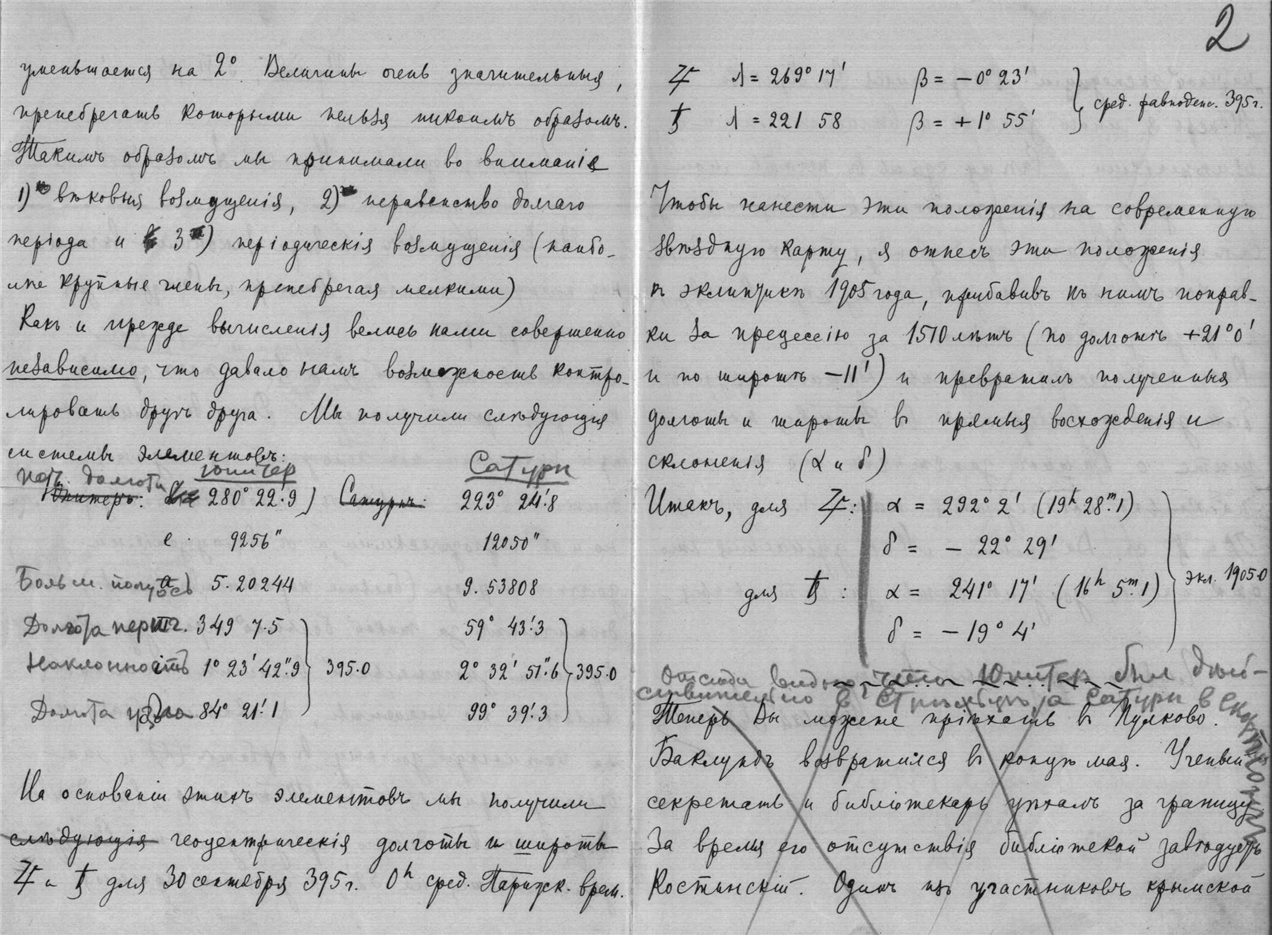 2
уменьшается на 2° Величины очень значительныя,
пренебрегать которыми нельзя никоимъ образомъ.
Такимъ образомъ мы принимали во вниманіе
1) вѣковыя возмущенія, 2) неравенство долгаго
періода и 3) періодическія возмущенія (наибо-
лѣе крупные члены, пренебрегая мелкими)
Какъ и прежде вычисленія велись нами совершенно
независимо, что давало намъ возможность контро-
лировать другъ друга. Мы получили слѣдующія
системы элементовъ:
Юпитер Сатурн
долгота Юпитеръ: 280° 22'.9 Сатурнъ 223° 24'.8
e 9256" 12050"
Больш. полуось 5.20244 9.53808
Долгота периг. 349 7.5 59° 43'.3
Наклонность 1° 23' 42".9 395.0 2° 32' 51".6 395.0
Долгота узла 84° 21'.1 99° 39'.3
На основаніи этихъ элементовъ мы получили
слѣдующія геоцентрическія долготы и широты
♃ и ♄ для 30 сентября 395 г. 0ʰ сред. Парижск. врем.
♃ λ = 269° 17' β = −0° 23'
♄ λ = 221 58 β = +1° 55'
сред. равноденс. 395 г.
Чтобы нанести эти положенія на современную
звѣздную карту, я отнесъ эти положенія
къ эклиптикѣ 1905 года, прибавивъ къ нимъ поправ-
ки за прецессію за 1510 лѣтъ (по долготѣ +21°0'
и по широтѣ −11') и превратилъ полученныя
долготы и широты въ прямыя восхожденія и
склоненія (α и δ)
Итакъ, для ♃: α = 292° 2' (19ʰ 28ᵐ.1)
δ = − 22° 29'
для ♄: α = 241° 17' (16ʰ 5ᵐ.1)
δ = − 19° 4'
экл. 1905.0
Отсюда видно, что Юпитер был дѣй-
ствительно в Стрѣльцѣ, а Сатурн в Скорпіонѣ
Теперь Вы можете пріѣхать въ Пулково.
Баклундъ возвратился въ концѣ мая. Ученый
секретарь и библіотекарь уѣхалъ за границу.
За время его отсутствія библіотекой завѣдуетъ
Костинскій. Одинъ изъ участниковъ крымской